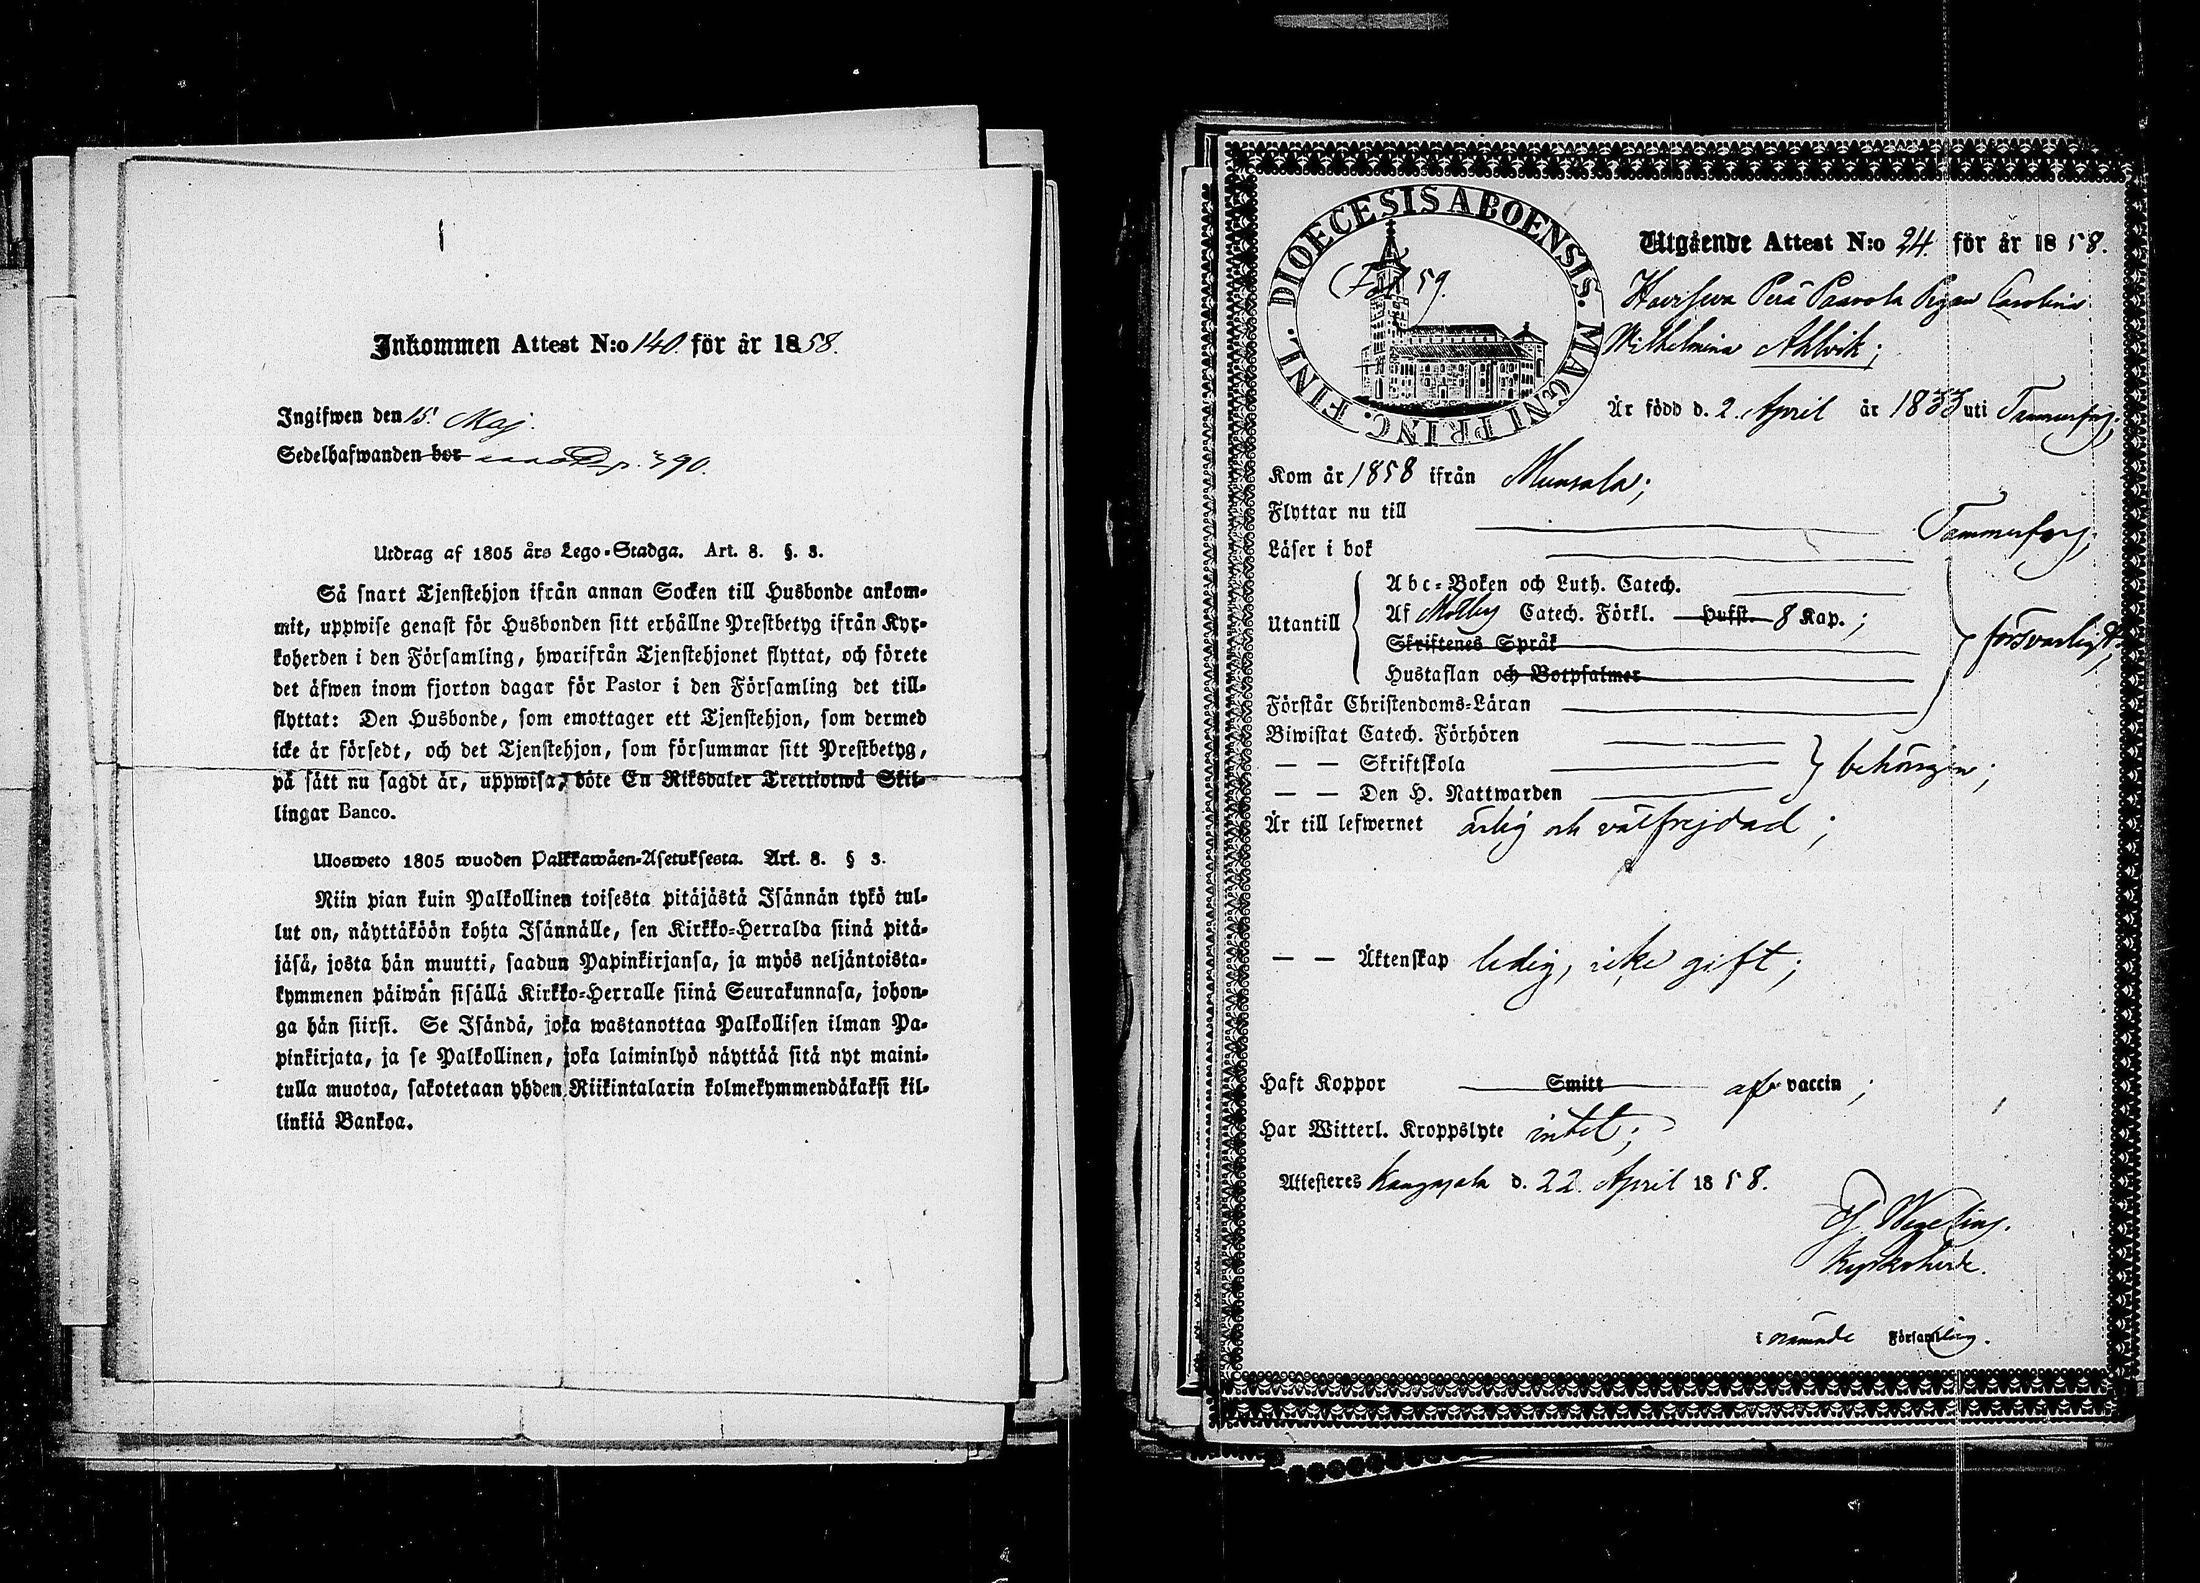 Inkommen Attest N:o 140. för år 1858.
Ingifwen den 15 Maj.
Sedelhafwanden bor p. 390.
Utdrag af 1805 års Lego-Stadga. Art. 8. §. 3.
Så snart Tjenstehjon ifrån annan Socken till Husbonde ankom-
mit, uppwise genast för Husbonden sitt erhållne Prestbetyg ifrån Kyr-
koherden i den Församling, hwarifrån Tjenstehjonet flyttat, och förete
det äfwen inom fjorton dagar för Pastor i den Församling det till-
flyttat: Den Husbonde, som emottager ett Tjenstehjon, som dermed
icke är försedt, och det Tjenstehjon, som försummar sitt Prestbetyg,
på sätt nu sagdt är, uppwisa, böte En Riksdaler Trettiotwå Skil-
lingar Banco.
Ulosweto 1805 wuoden Palkkawäen-Asetuksesta. Art. 8. § 3.
Niin pian kuin Palkollinen toisesta pitäjästä Isännän tykö tul-
lut on, näyttäköön kohta Isännälle, sen Kirkko-Herralda siinä pitä-
jäsä, josta hän muutti, saadun Papinkirjansa, ja myös neljäntoista-
kymmenen päiwän sisällä Kirkko-Herralle siinä Seurakunnasa, johon-
ga hän siirsi. Se Isändä, joka wastanottaa Palkollisen ilman Pa-
pinkirjata, ja se Palkollinen, joka laiminlyö näyttää sitä nyt maini-
tulla muotoa, sakotetaan yhden Riikintalarin kolmekymmendäkaksi kil-
linkiä Bankoa.
DIOECESIS ABOENSIS. MAGNI PRINC. FINL.
Fol 59.
Utgående Attest N:o 24. för år 1858.
Havisewa Perä Paavola Pigan Carolina
Wilhelmina Ahlvik;
Är född d. 2. April år 1833 uti Tammerfors,
Kom år 1858 ifrån Munsala;
Flyttar nu till Tammerfors;
Läser i bok
Utantill
Abc-Boken och Luth. Catech.
Af Catech. Förkl. Hufst. 8 Kap.;
Skriftenes Språk
Hustaflan och Botpsalmer
försvarligt;
Förstår Christendoms-Läran
Biwistat Catech. Förhören
— — Skriftskola
— — Den H. Nattwarden
behörigen;
Är till lefwernet ärlig och välfrejdad;
— — Äktenskap ledig, icke gift;
Haft Koppor Smitt af vaccin;
Har Witterl. Kroppslyte intet;
Attesteres Kangasala d. 22. April 1858.
Wegelius.
Kyrkoherde.
i nämnde Församling.